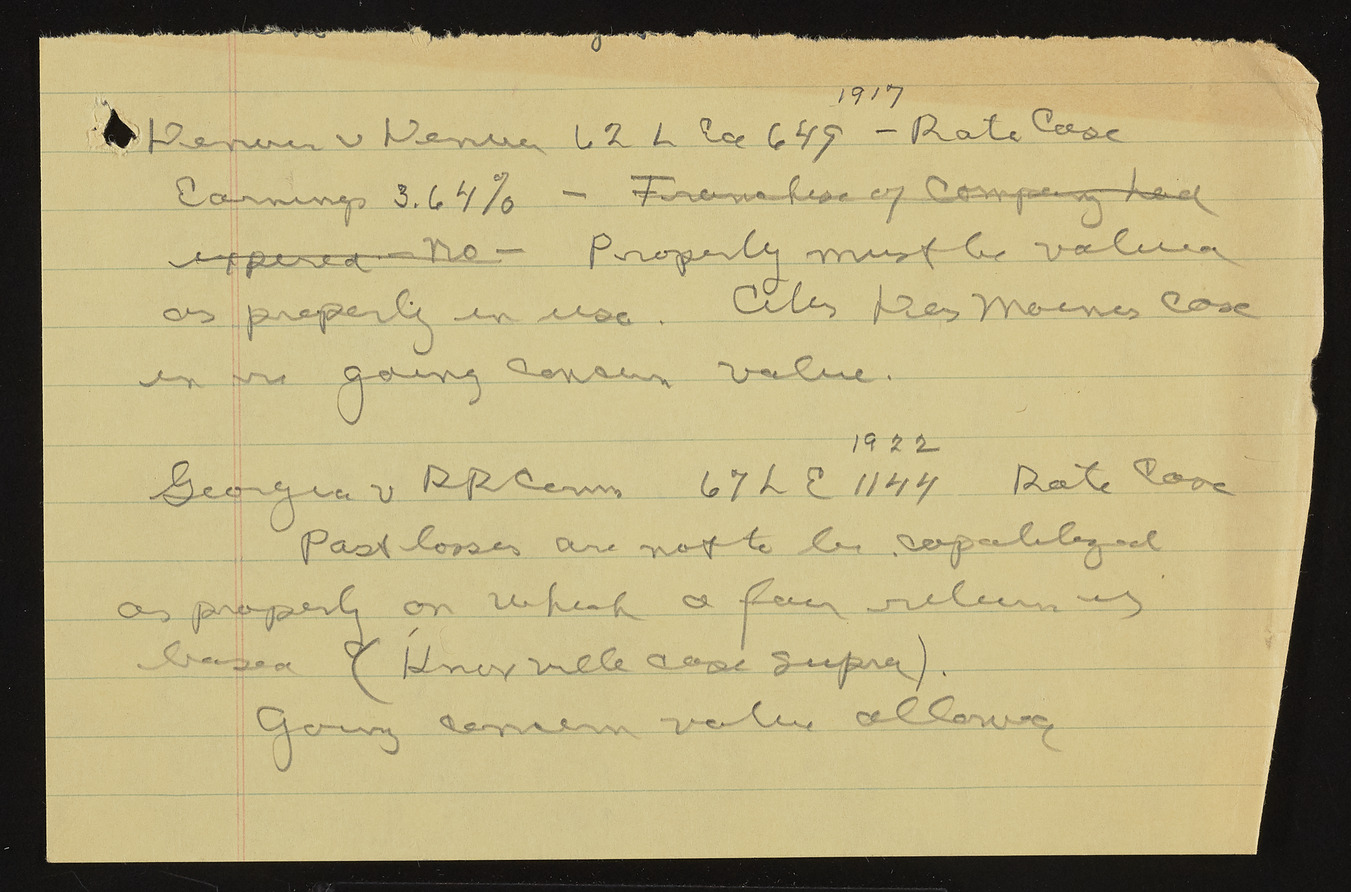 1917
Denver v Denver 62 L Ed 649 - Rate Case
Earnings 3.64% - Franchise of Company had
expired - No - Property must be valued
as property in use. Cites Des Moines Case
in re going concern value.
1922
Georgia v RR Comm 67 L E 1144 Rate Case
Past losses are not to be capitalized
as property on which a fair return is
based (Knoxville case supra).
Going concern value allowed